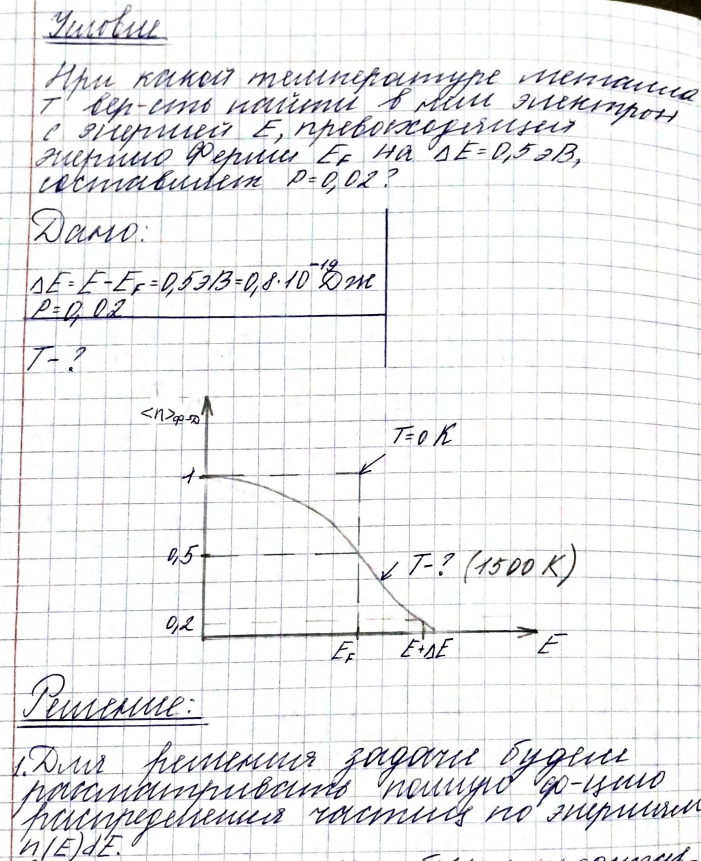 Условие
При какой температуре металла
T вер-сть найти в нём электрон
с энергией E, превосходящей
энергию Ферми E_F на ΔE=0,5 эВ,
составляет P=0,02?
Дано:
ΔE = E-E_F=0,5эВ=0,8·10^-19 Дж
P=0,02
T-?
<n>ф-д
T=0 K
1
0,5
T-? (1500 K)
0,2
E_F
E+ΔE
E
Решение:
1. Для решения задачи будем
рассматривать полную ф-цию
распределения частиц по энергиям
n(E)dE.